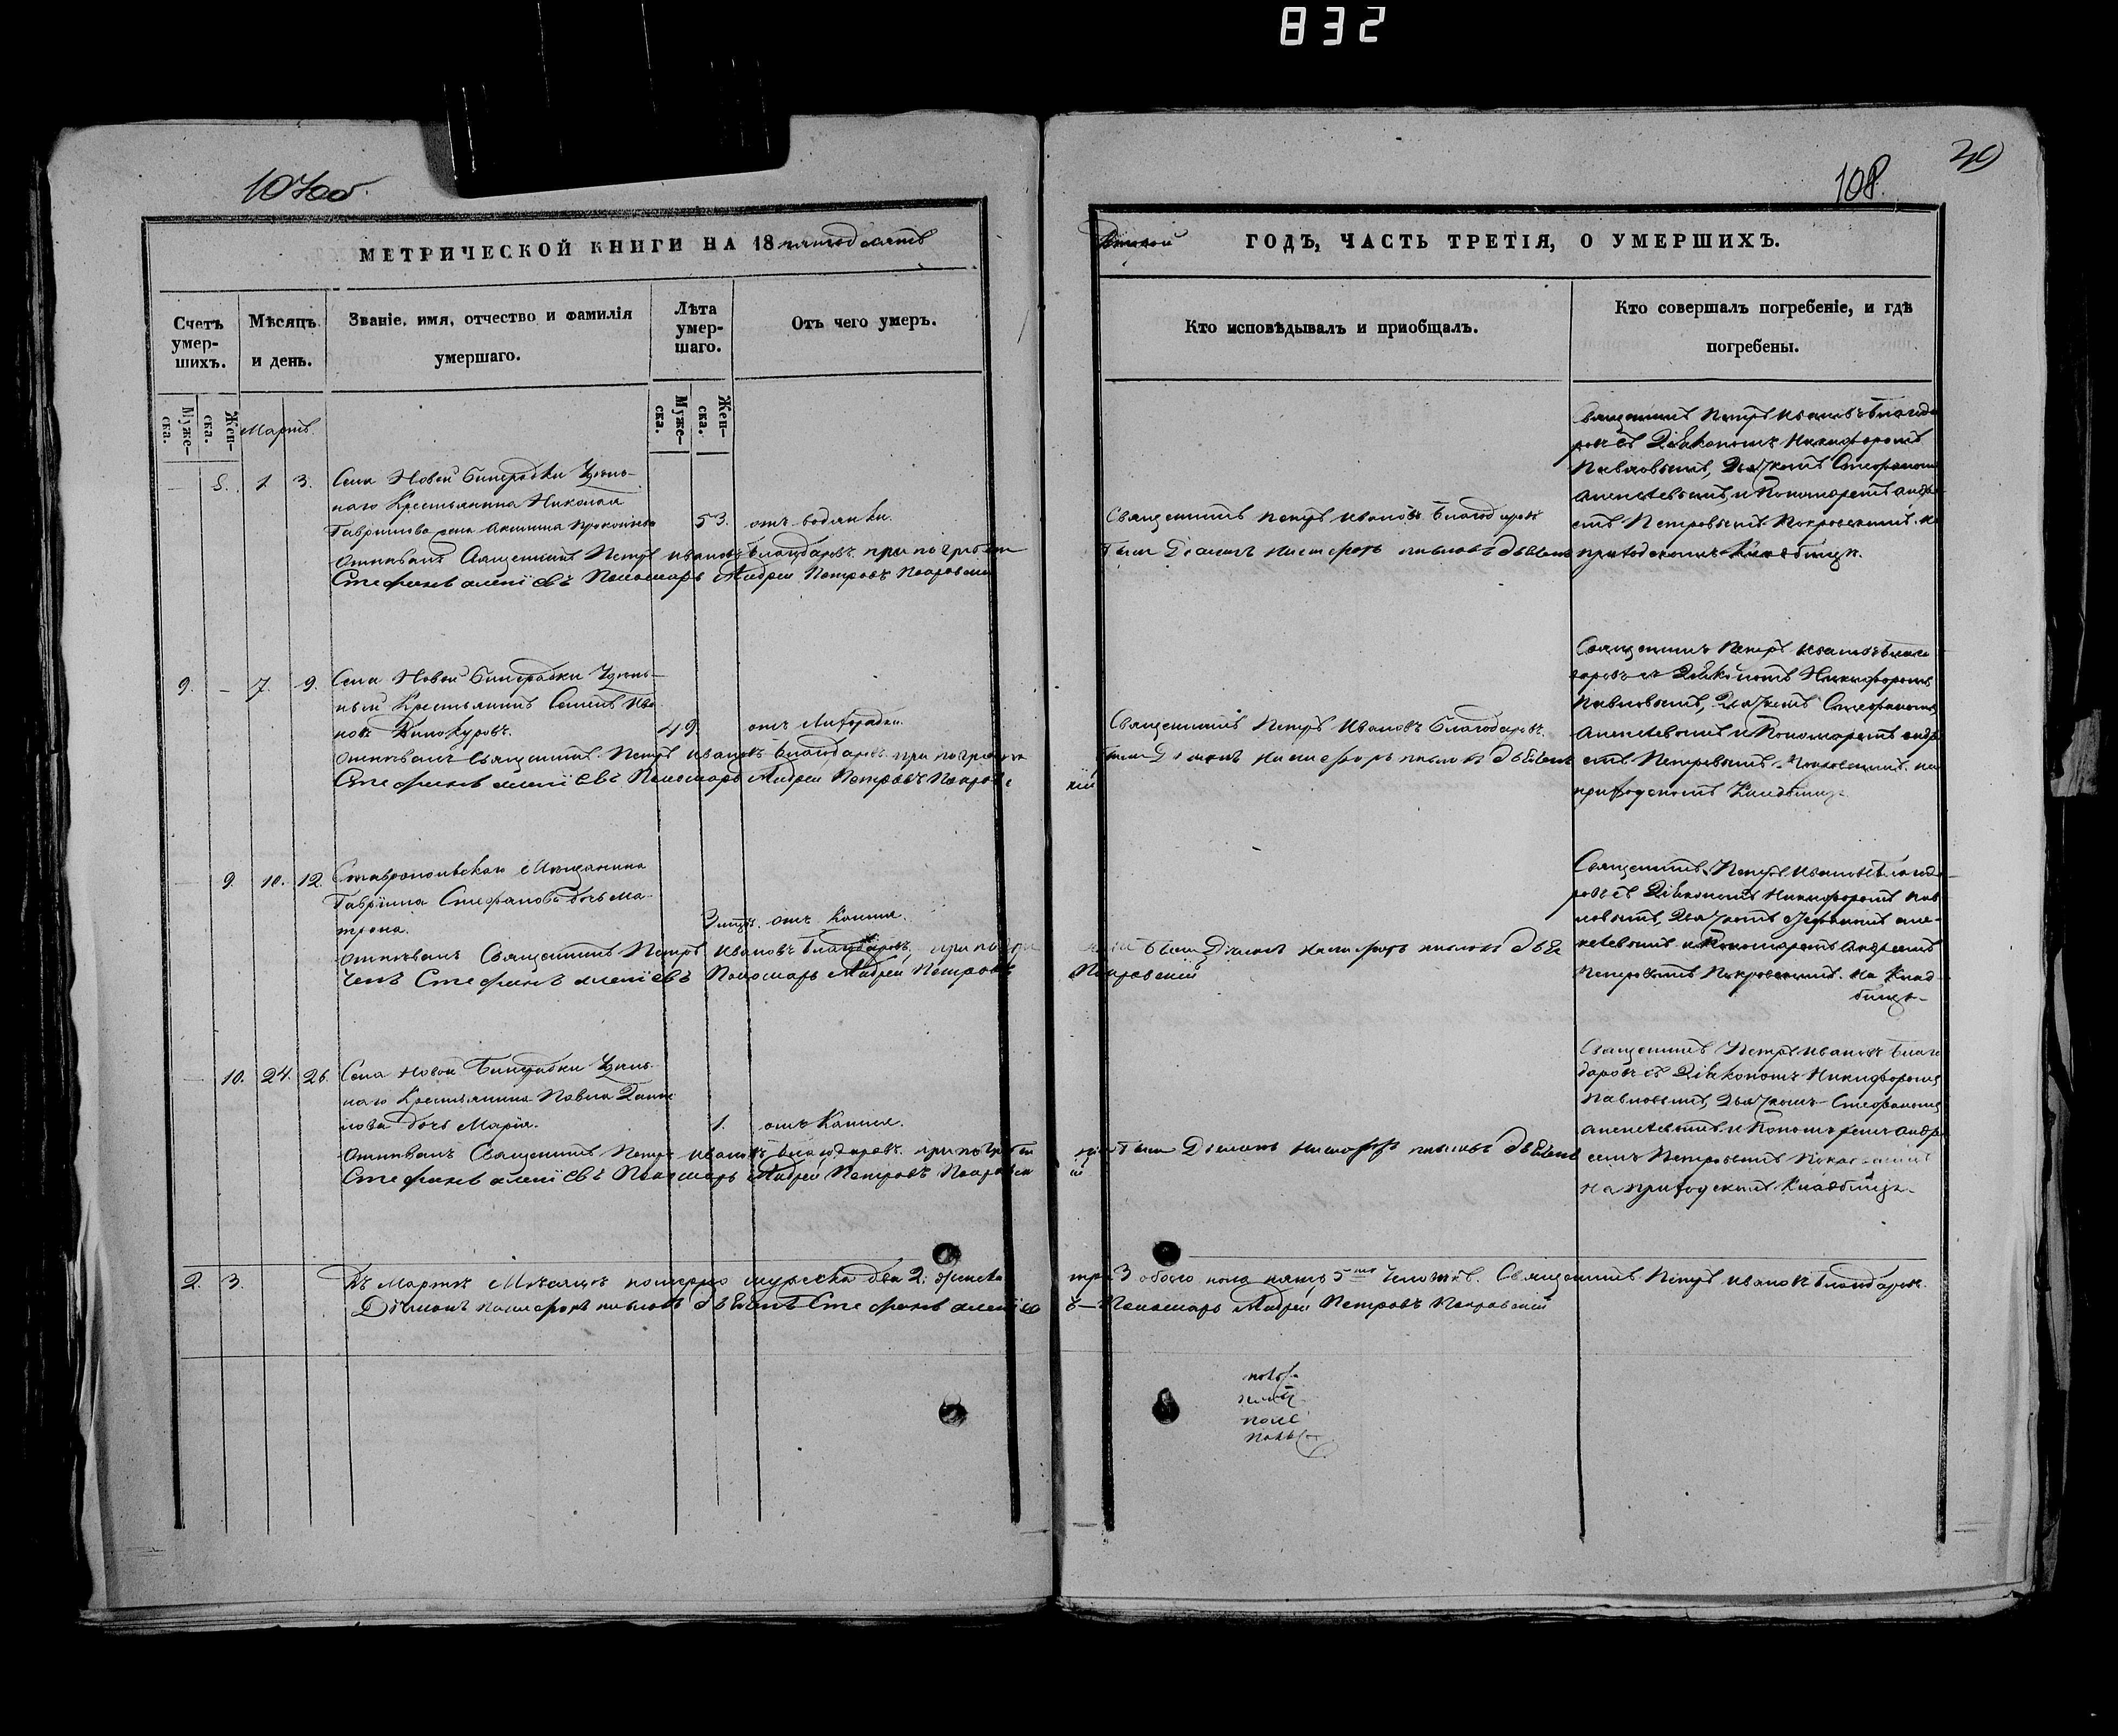 832
107об.
108.
МЕТРИЧЕСКОЙ КНИГИ НА 18 пятьдесятъ
Второй ГОДЪ, ЧАСТЬ ТРЕТІЯ, О УМЕРШИХЪ.
Счетъ умер-шихъ.
Мѣсяцъ и день.
Званіе, имя, отчество и фамилія умершаго.
Лѣта умер-шаго.
Отъ чего умеръ.
Кто исповѣдывалъ и приобщалъ.
Кто совершалъ погребеніе, и гдѣ погребены.
Муже-ска.
Жен-ска.
Муже-ска.
Жен-ска.
Мартъ.
8. 1 3.
Села Новой Бинарадки Удѣль-
наго Крестьянина Николая
Гаврилова жена Акилина Прокопіева
53. отъ водянки.
Отпѣвалъ Священникъ Петръ Ивановъ Благодаровъ при погребе
Стефанъ Алексіевъ Пономарь Андрей Петровъ Покровскі
Священникъ Петръ Ивановъ Благодаровъ
были Діаконъ Никифоръ Павловъ
Священникъ Петръ Ивановъ Благода
ровъ съ Діакономъ Никифоромъ
Павловымъ, Дьячкомъ Стефаномъ
Алексѣевымъ и Пономаремъ Андре
емъ Петровымъ Покровскимъ. на
приходскомъ Кладбищѣ.
9. – 7. 9.
Села Новой Бинарадки Удѣль-
ный Крестьянинъ Семенъ Ива
новъ Винокуровъ.
49 отъ лихорадки.
Отпѣвалъ Священникъ Петръ Ивановъ Благодаровъ при погребе
Стефанъ Алексіевъ Пономарь Андрей Петровъ Покровс
кій
Священникъ Петръ Ивановъ Благодаровъ.
были Діаконъ Никифоръ Павловъ
Священникъ Петръ Ивановъ Благо
даровъ съ Діакономъ Никифоромъ
Павловымъ, Дьячкомъ Стефаномъ
Алексѣевымъ и Пономаремъ Андре
емъ Петровымъ Покровскимъ. на
приходскомъ Кладбищѣ
9. 10. 12.
Ставропольскаго Мѣщанина
Гавріила Стефанова дочь Ма-
трона.
3 отъ кашля.
Отпѣвалъ Священникъ Петръ Ивановъ Благодаровъ, при погре
Стефанъ Алексіевъ Пономарь Андрей Петровъ
были Діаконъ Никифоръ Павловъ
Покровскій
Священникъ Петръ Ивановъ Благода
ровъ съ Діакономъ Никифоромъ Пав
ловымъ, Дьячкомъ Стефаномъ Але-
ксѣевымъ и Пономаремъ Андреемъ
Петровымъ Покровскимъ. на Клад-
бищѣ.
10. 24. 26.
Села Новой Бинарадки Удѣль-
наго Крестьянина Павла Дани
лова дочь Марія.
1. отъ Кашля.
Отпѣвалъ Священникъ Петръ Ивановъ Благодаровъ. при погребе
Стефанъ Алексіевъ Пономарь Андрей Петровъ Покровск
ній были Діаконъ Никифоръ Павловъ
ій
Священникъ Петръ Ивановъ Благо
даровъ съ Діакономъ Никифоромъ
Павловымъ, Дьячкомъ Стефаномъ
Алексѣевымъ и Пономаремъ Андре
емъ Петровымъ Покровскимъ
на приходскомъ Кладбищѣ.
2. 3.
Въ Мартѣ Мѣсяцѣ померло мужеска два 2. женска
три 3 обоего пола пять 5 человѣкъ. Священникъ Петръ Ивановъ Благодаровъ.
Діаконъ Никифоръ Павловъ Стефанъ Алексіев
ъ – Пономарь Андрей Петровъ Покровскій